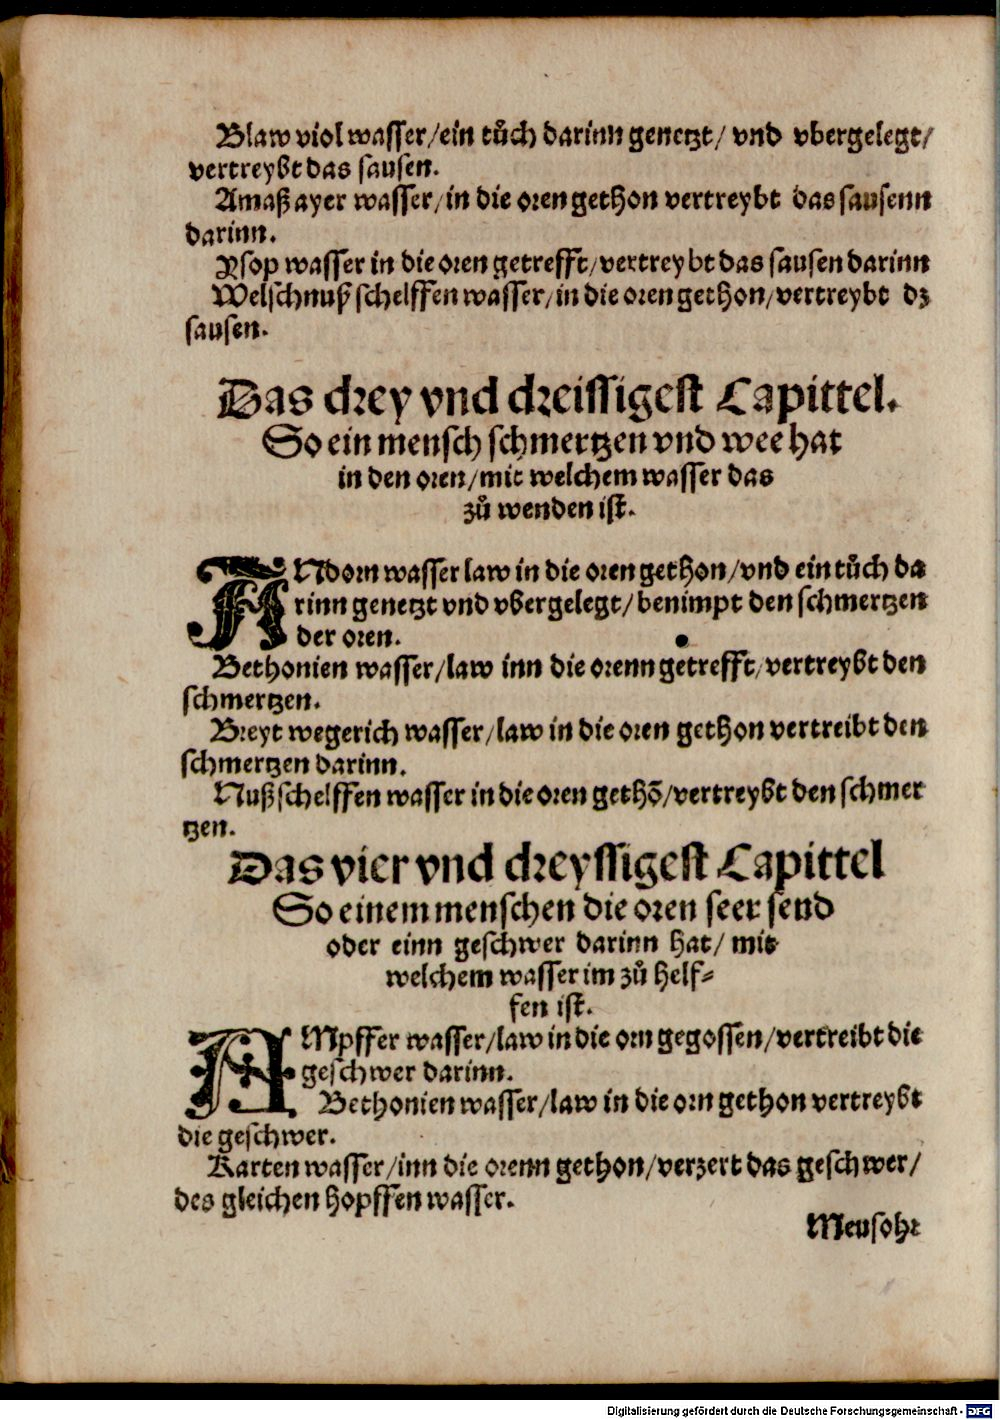 Blaw viol wasser/ein tůch darinn genetzt/ vnd vbergelegt/
vertreybt das sausen.
Amaßayer wasser/in die oren gethon vertreybt das sausenn
darinn.
Ysop wasser in die oren getrefft/vertreybt das sausen darinn
Welschnuß schelffen wasser/in die oren gethon/vertreybt dz
sausen.
Das drey vnd dreissigest Capittel.
So ein mensch schmertzen vnd wee hat
in den oren/mit welchem wasser das
zů wenden ist.
ANdorn wasser law in die oren gethon/vnd ein tůch da
rinn genetzt vnd vbergelegt/benimpt den schmertzen
der oren.
Bethonien wasser/law inn die orenn getrefft/vertreybt den
schmertzen.
Breyt wegerich wasser/law in die oren gethon vertreibt den
schmertzen darinn.
Nußschelffen wasser in die oren gethõ/vertreybt den schmer
tzen.
Das vier vnd dreyssigest Capittel
So einem menschen die oren seer send
oder einn geschwer darinn hat/ mit
welchem wasser im zů helf-
fen ist.
AMpffer wasser/law in die orn gegossen/vertreibt die
geschwer darinn.
Bethonien wasser/law in die orn gethon vertreybt
die geschwer.
Karten wasser/inn die orenn gethon/verzert das geschwer/
des gleichen hopffen wasser.
Meusohr
Digitalisierung gefördert durch die Deutsche Forschungsgemeinschaft - DFG